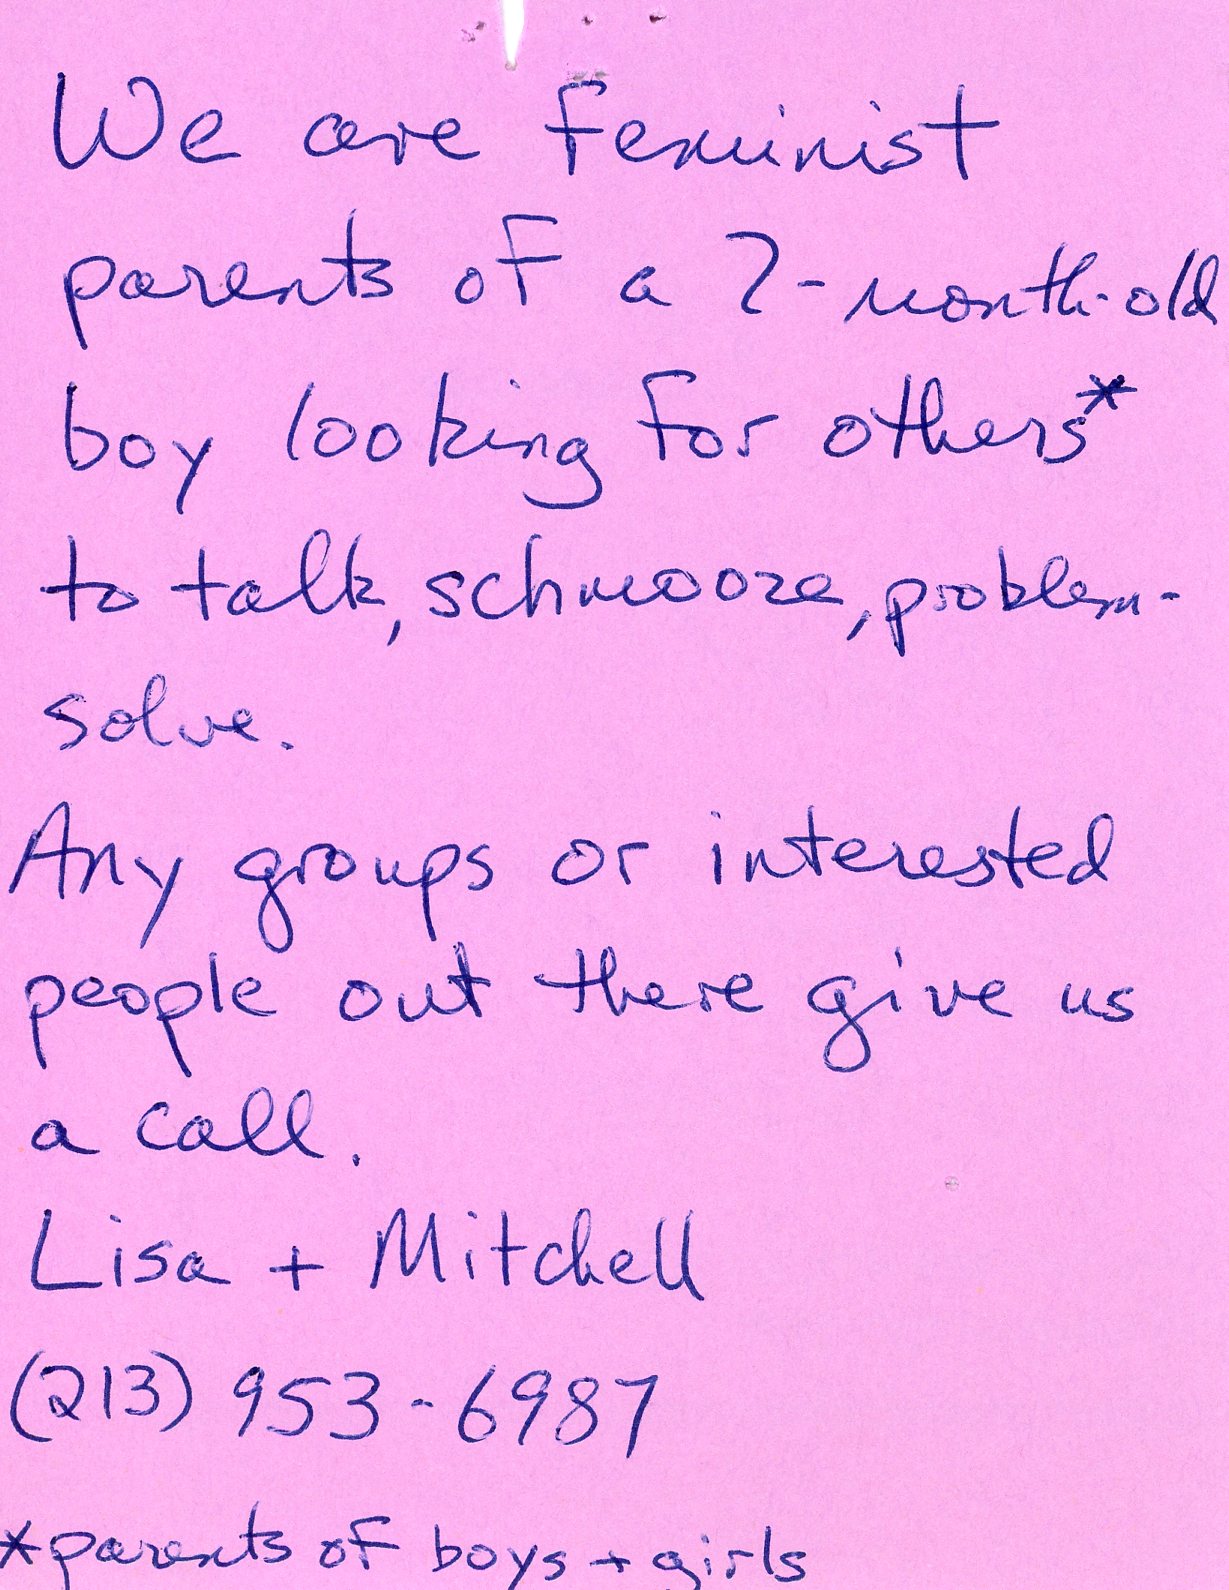 We are feminist
parents of a 7-month-old
boy looking for others*
to talk, schmooze, problem-
solve.
Any groups or interested
people out there give us
a call.
Lisa + Mitchell
(213) 953-6987
*parents of boys + girls